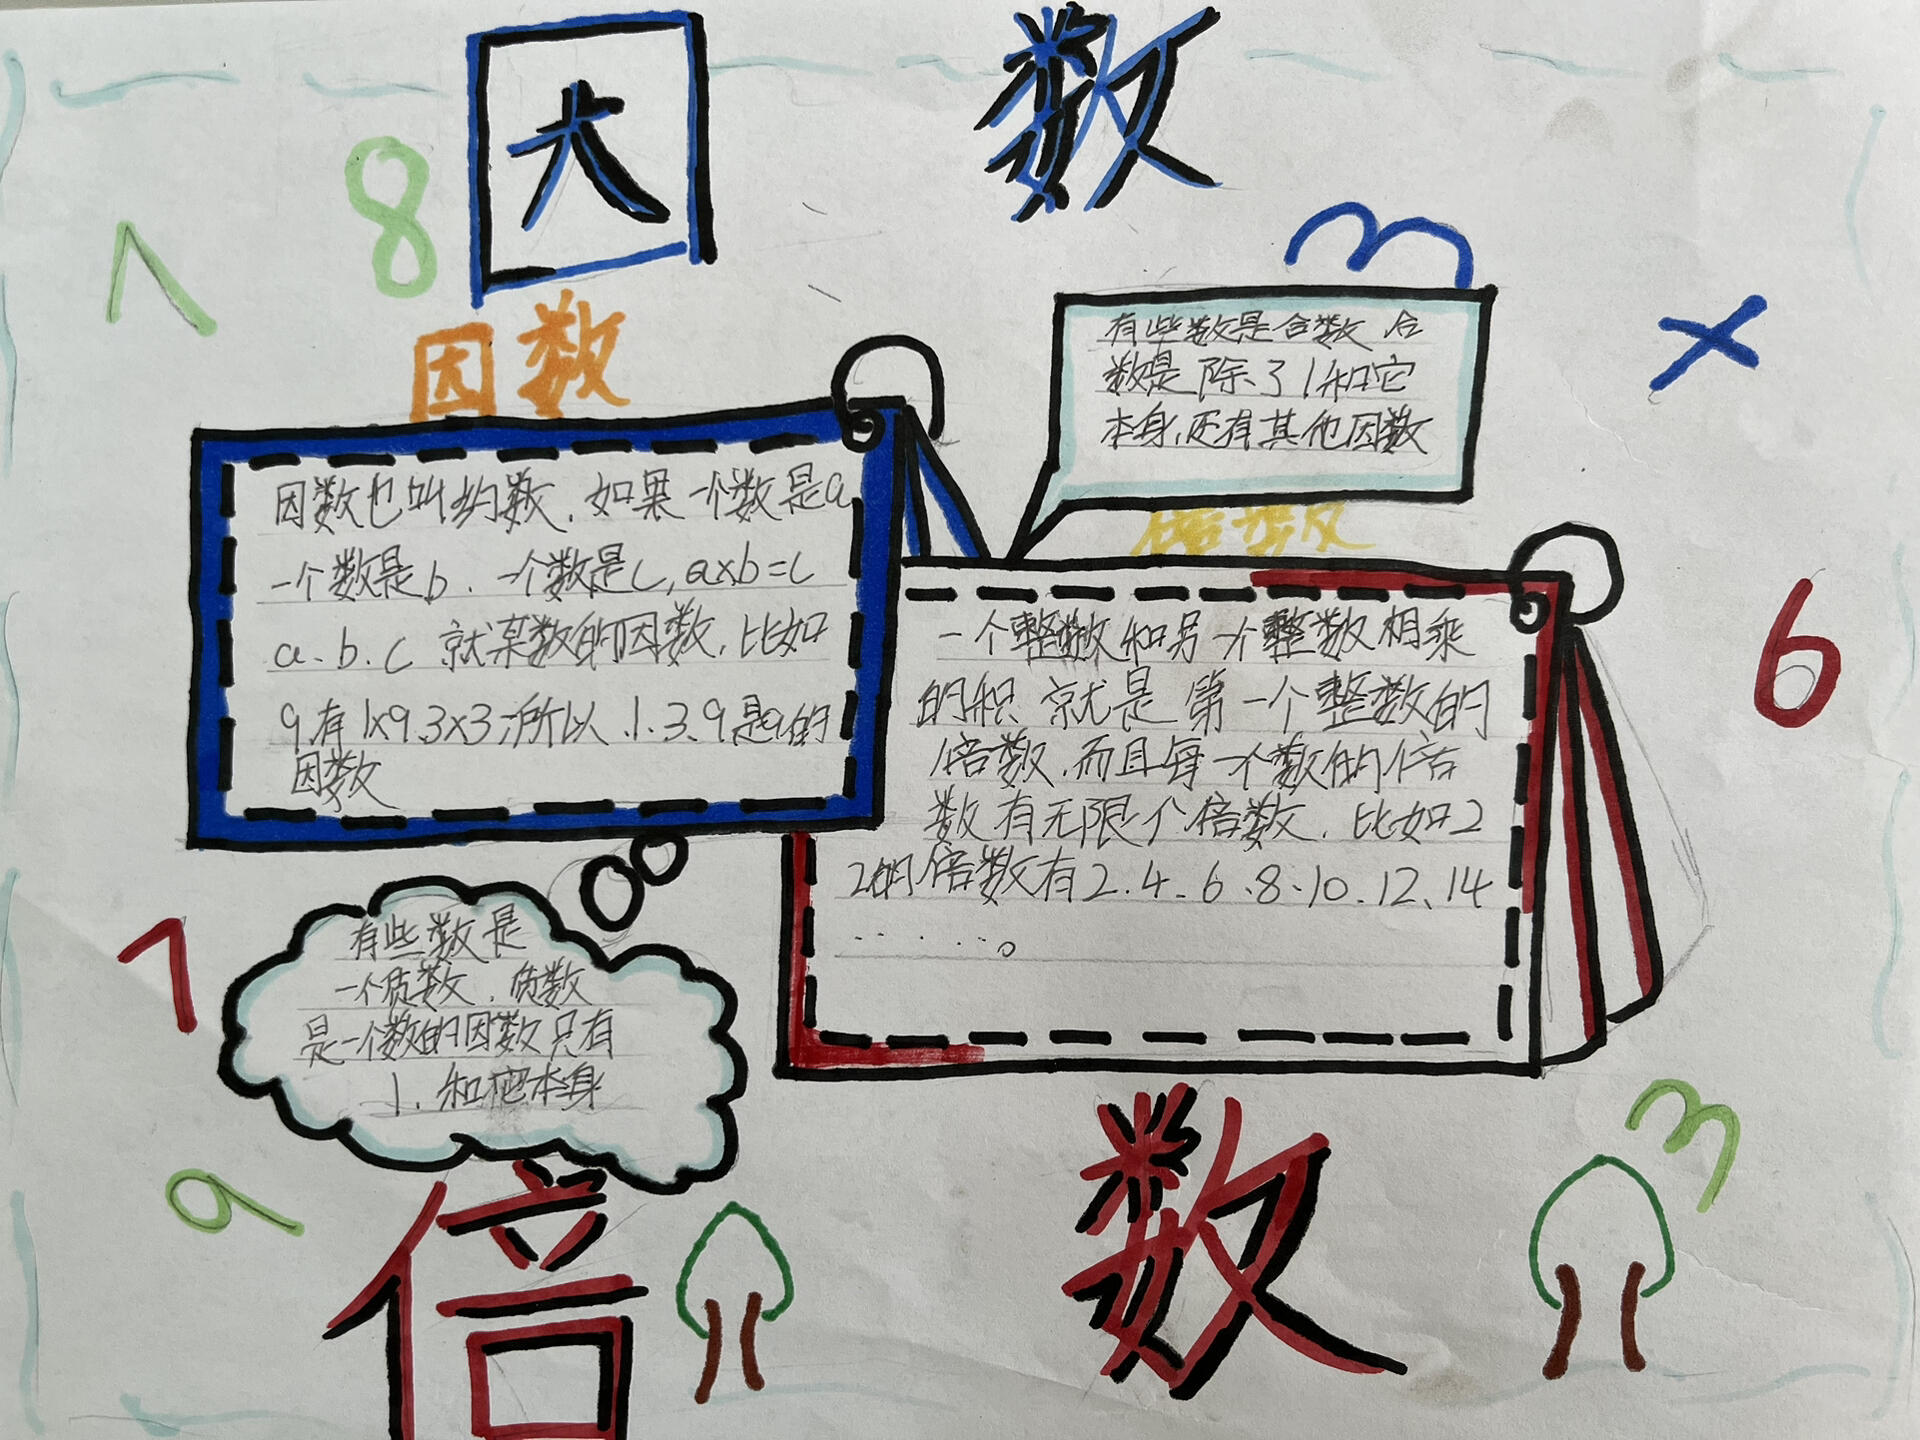 因 数
8
1
因数
3
×
有些数是合数 合
数是 除了1和它
本身,还有其他因数
因数也叫约数.如果一个数是a
一个数是b.一个数是c,a×b=c
a、b、c 就某数的因数,比如
9有1×9、3×3,所以 1、3、9是9的
因数
倍数
6
一个整数和另一个整数相乘
的积 就是 第一个整数的
倍数,而且每一个数的倍
数有无限个倍数,比如2
2的倍数有2、4、6、8、10、12、14
……。
有些数是
一个质数,质数
是一个数的因数只有
1、和他本身
7
9
3
倍 数